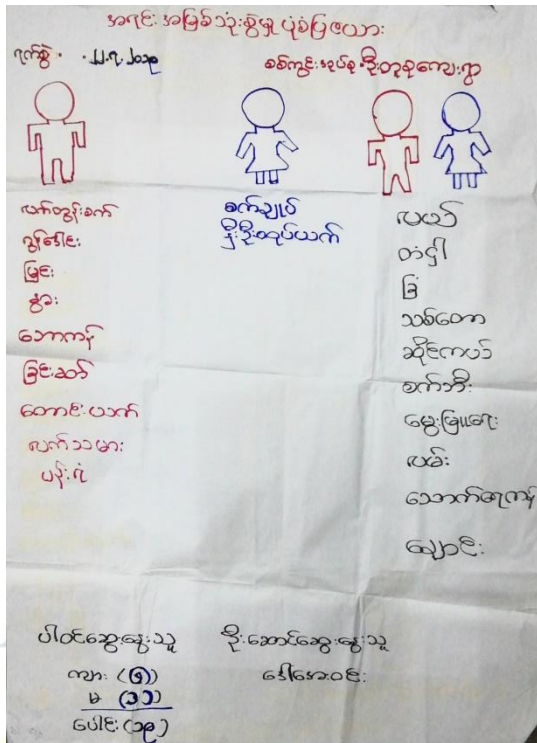 အရင်းအမြစ်သုံးစွဲမှု ပုံစံပြဇယား
ရက်စွဲ - ၂၂.၇.၂၀၁၉
စစ်ကိုင်း အုပ်စု ဦးတူစု ကျေးရွာ
လက်တွန်းစက်
ထွန်တုံး
မြင်း
နွား
ဘောကန်
ခြင်းခတ်
တောင်းယက်
လက်သမား
ပန်းရံ
စက်ချုပ်
နှီးဦးထုပ်ယက်
လယ်
တံငါ
ခြံ
သစ်တော
ဆိုင်ကယ်
စက်ဘီး
မွေးမြူရေး
လမ်း
သောက်ရေကန်
ချောင်း
ပါဝင်ဆွေးနွေးသူ
ကျား (၆)
မ (၁၃)
ပေါင်း (၁၉)
ဦးဆောင်ဆွေးနွေးသူ
ဒေါ်အေးဝင်း